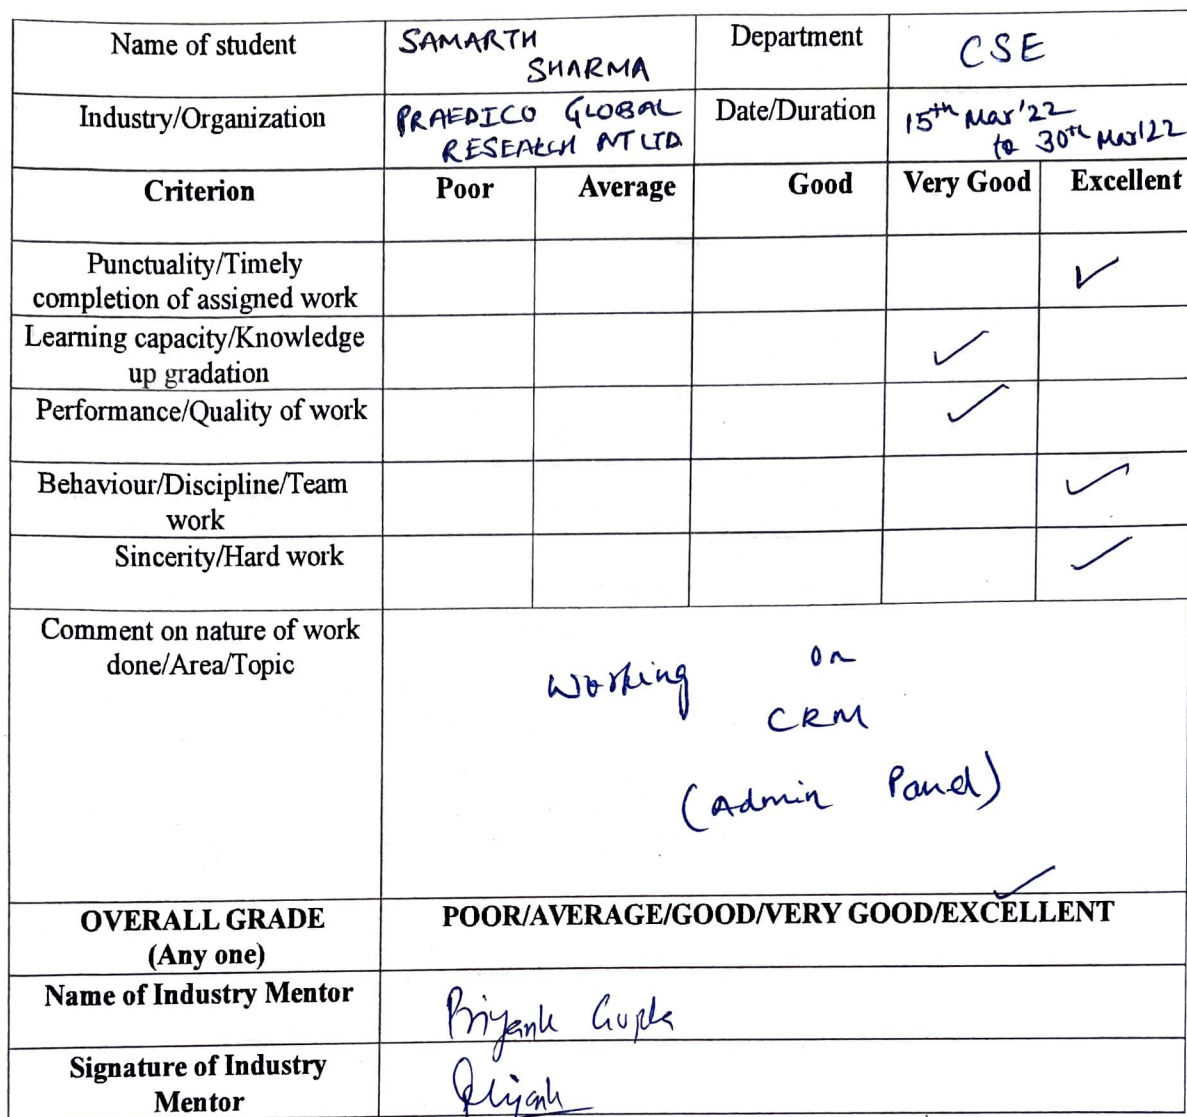 Name of student SAMARTH SHARMA Department CSE
Industry/Organization PRAEDICO GLOBAL RESEARCH PVT LTD Date/Duration 15th Mar'22 to 30th Mar'22
Criterion Poor Average Good Very Good Excellent
Punctuality/Timely
completion of assigned work ✓
Learning capacity/Knowledge
up gradation ✓
Performance/Quality of work ✓
Behaviour/Discipline/Team
work ✓
Sincerity/Hard work ✓
Comment on nature of work
done/Area/Topic
Working on
CRM
(Admin Panel)
✓
OVERALL GRADE POOR/AVERAGE/GOOD/VERY GOOD/EXCELLENT
(Any one)
Name of Industry Mentor Priyank Gupta
Signature of Industry
Mentor Priyank